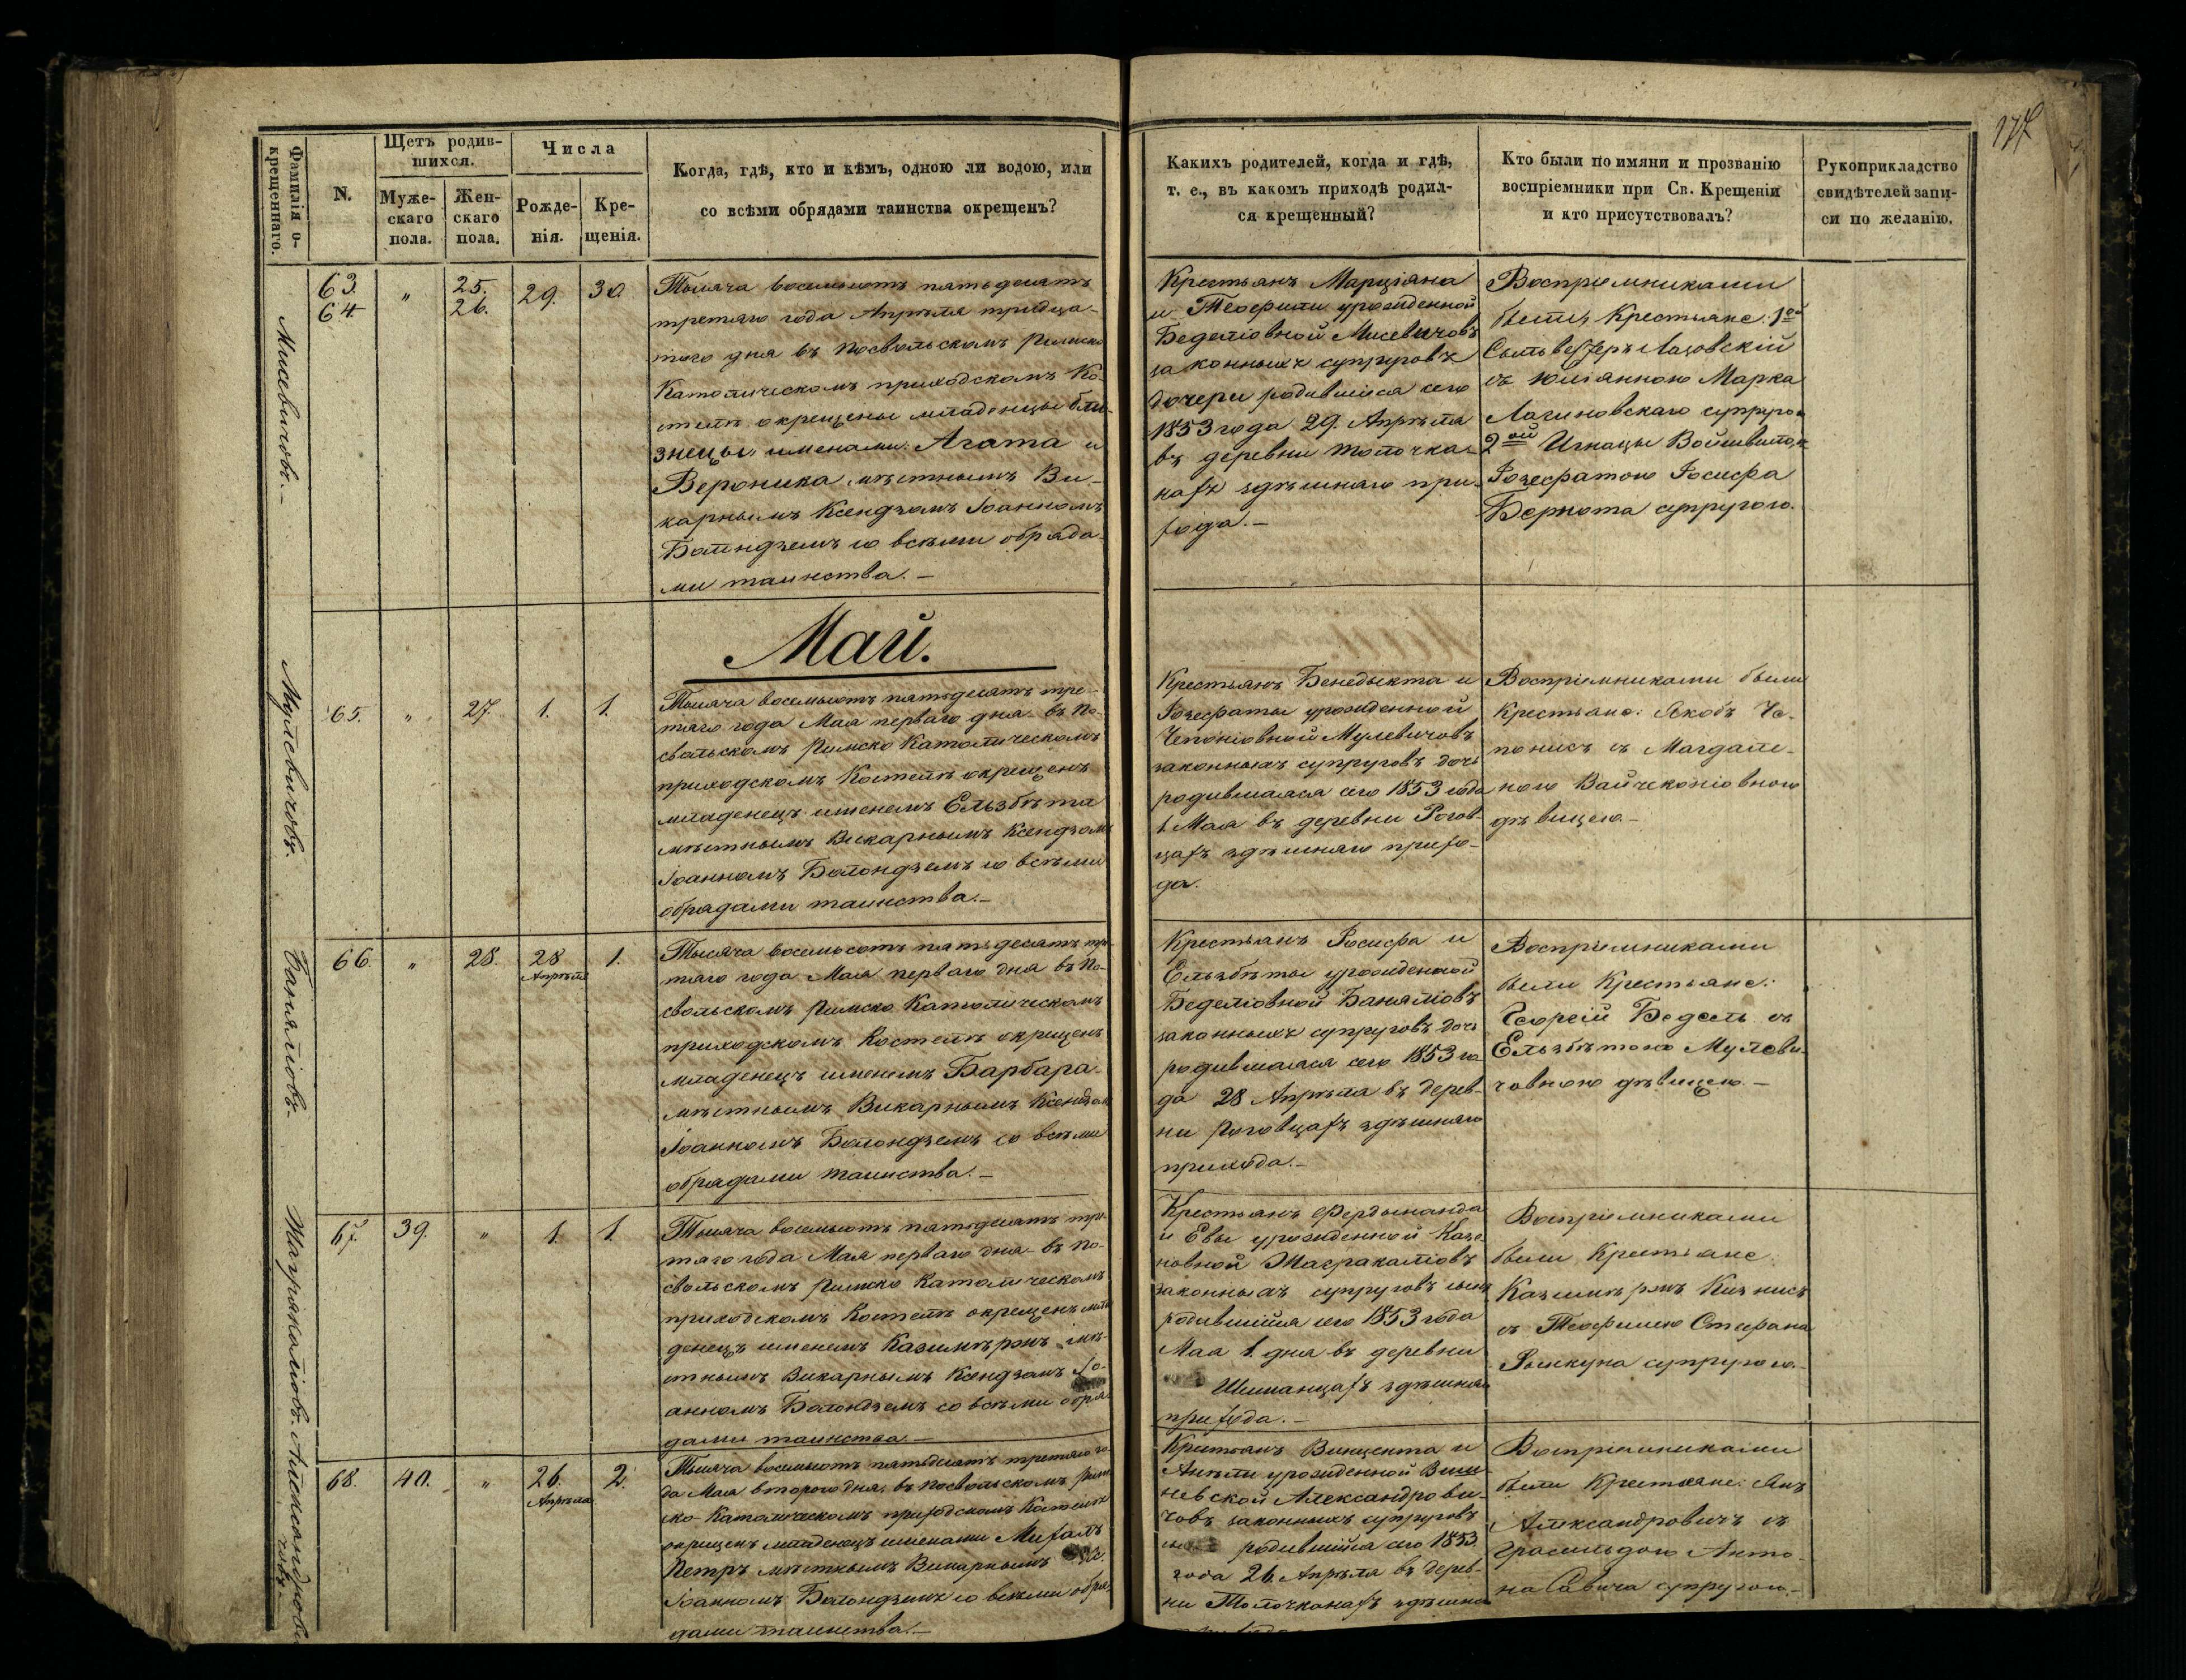 177
Фамилія о-
крещеннаго.
N.
Щетъ родив-
шихся.
Муже-
скаго
пола.
Жен-
скаго
пола.
Числа
Рожде-
нія.
Кре-
щенія.
Когда, гдѣ, кто и кѣмъ, одною ли водою, или
со всѣми обрядами таинства окрещенъ?
Какихъ родителей, когда и гдѣ,
т. е., въ какомъ приходѣ родил-
ся крещенный?
Кто были по имяни и прозванію
воспріемники при Св. Крещеніи
и кто присутствовалъ?
Рукоприкладство
свидѣтелей запи-
си по желанію.
Мисевичовъ.–
63.
64.
"
25.
26.
29.
30.
Тысяча восемьсотъ пятьдесятъ
третяго года Апрѣля тридца-
таго дня въ Посвольскомъ Римско
Католическомъ приходскомъ Ко-
стелѣ окрещены младенцы бли-
знецы, именами: Агата и
Вероника, мѣстнымъ Ви-
карнымъ Ксендзомъ Іоанномъ
Болондземъ со всѣми обряда-
ми таинства.–
Крестьянъ Марціяна
и Теофили урожденной
Беделіовной Мисевичовъ
законныхъ супруговъ
дочери родившіяся сего
1853 года 29. Апрѣля
въ деревни Толочка-
нахъ здѣшняго при-
хода.–
Воспріемниками
были, Крестьяне: 1ой
Сильвестеръ Лазовскій
съ Юліянною Марка
Лагиновскаго супругою
2ой Игнацы Войшвило, съ
Іозефатою Іосифа
Бернота супругою.
Май.
Мулевичовъ.
65.
"
27.
1.
1.
Тысяча восемьсотъ пятьдесятъ тре-
тяго года Мая перваго дня въ По-
свольскомъ Римско Католическомъ
приходскомъ Костелѣ окрещенъ
младенецъ именемъ Ельзбѣта
мѣстнымъ Викарнымъ Ксендзомъ
Іоанномъ Болондземъ со всѣми
обрядами таинства.–
Крестьянъ Бенедыкта и
Іозефаты урожденной
Чепоніовной Мулевичовъ
законныхъ супруговъ дочь
родившаяся сего 1853 года
1. Мая въ деревни Рогов-
цахъ здѣшняго прихо-
да.
Воспріемниками были
Крестьяне: Якобъ Че-
понисъ съ Магдале-
ною Вайчеконіовною
дѣвицею.–
Банялiовъ.
66.
"
28.
28
Апрѣля
1.
Тысяча восемьсотъ пятьдесятъ тре-
тяго года Мая перваго дня въ По-
свольскомъ Римско Католическомъ
приходскомъ Костелѣ окрещенъ
младенецъ именемъ Барбара
мѣстнымъ Викарнымъ Ксендзомъ
Іоанномъ Болондземъ со всѣми
обрядами таинства.–
Крестьянъ Іосифа и
Ельзбѣты урожденной
Беделіовной Баняліовъ
законныхъ супруговъ дочь
родившаяся сего 1853 го-
да 28 Апрѣля въ дерев-
ни Роговцахъ здѣшняго
прихода.–
Воспріемниками
были Крестьяне:
Георгій Бедель съ
Ельзбѣтою Мулеви-
човною дѣвицею.–
Шагракаліовъ.
67.
39.
"
1.
1.
Тысяча восемьсотъ пятьдесятъ тре-
тяго года Мая перваго дня въ По-
свольскомъ Римско Католическомъ
приходскомъ Костелѣ окрещенъ мла-
денецъ именемъ Казимѣржъ мѣ-
стнымъ Викарнымъ Ксендзомъ Іо-
анномъ Болондземъ со всѣми обря-
дами таинства.–
Крестьянъ Фердынанда
и Евы урожденной
новной Шагракаліовъ
законныхъ супруговъ сынъ
родившійся сего 1853 года
Мая 1. дня въ деревни
Шиманцахъ здѣшняго
прихода.–
Воспріемниками
были Крестьяне:
Казимѣржъ Кизнисъ
съ Теофилею Стефана
Рымкуна супругою.–
Александрови-
човъ
68.
40.
"
26.
Апрѣля
2.
Тысяча восемьсотъ пятьдесятъ третяго го-
да Мая второго дня, въ Посвольскомъ Рим-
ско-Католическомъ приходскомъ Костелѣ
окрещенъ младенецъ именами Михалъ
Петръ мѣстнымъ Викарнымъ
Іоанномъ Болондземъ со всѣми обря-
дами таинства.–
Крестьянъ Винцента и
Анѣли урожденной Виш-
невской Александрови-
човъ законныхъ супруговъ
родившійся сего 1853
года 26. Апрѣля въ дерев-
ни Толочканахъ здѣшня
Воспріемниками
были Крестьяне: Янъ
Александровичъ съ
Грасильдою Анто-
на Савича супругою.–